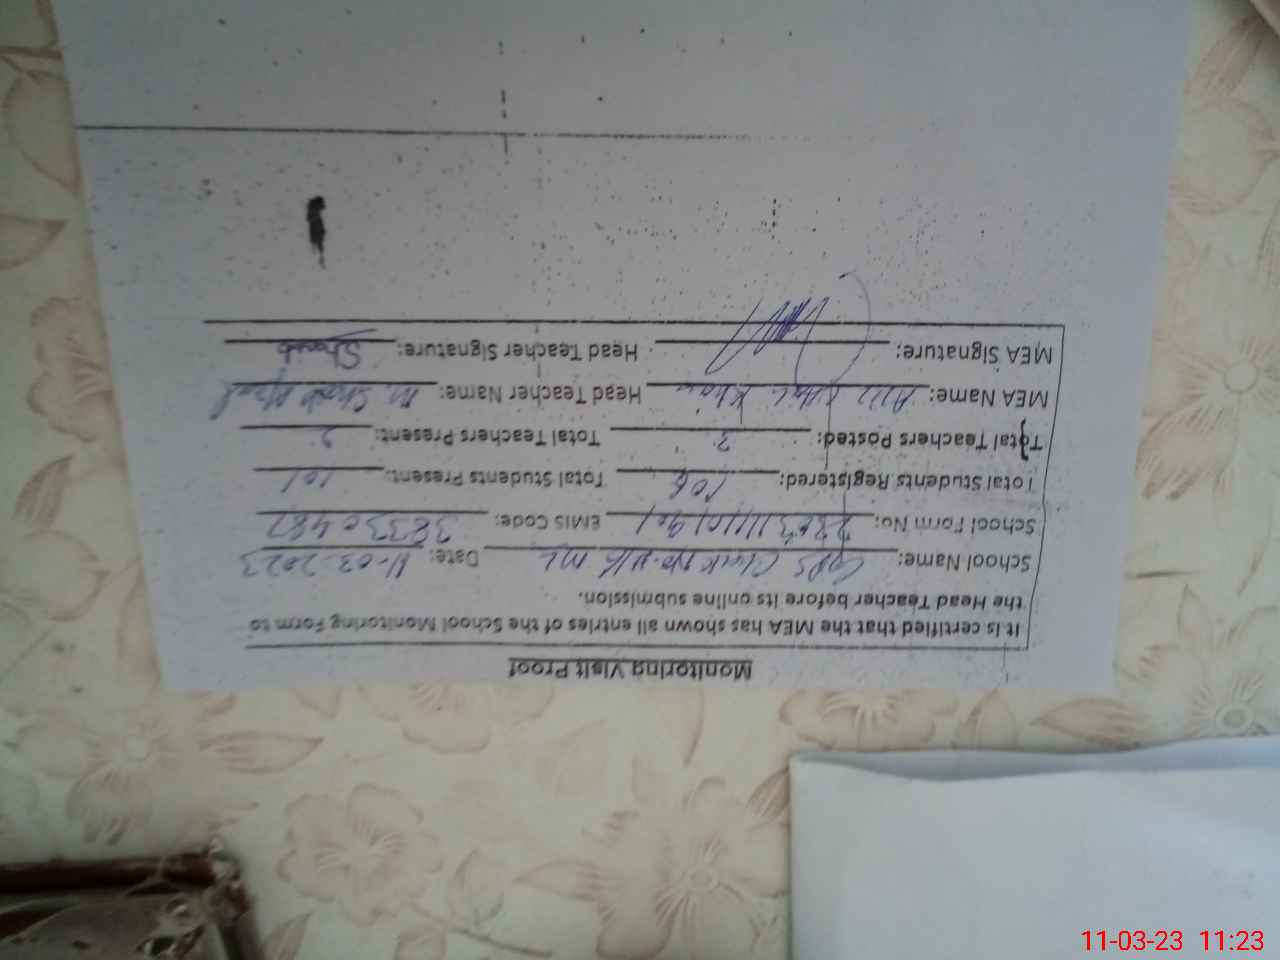 Monitoring Visit Proof
It is certified that the MEA has shown all entries of the School Monitoring Form to
the Head Teacher before its online submission.
School Name: GPS Chak No. 11/6 ML Date: 11-03-2023
School Form No: EMIS Code: 38330487
Total Students Registered: 106 Total Students Present: 101
Total Teachers Posted: Total Teachers Present:
MEA Name: Khan Head Teacher Name: M.
MEA Signature: Head Teacher Signature:
11-03-23 11:23